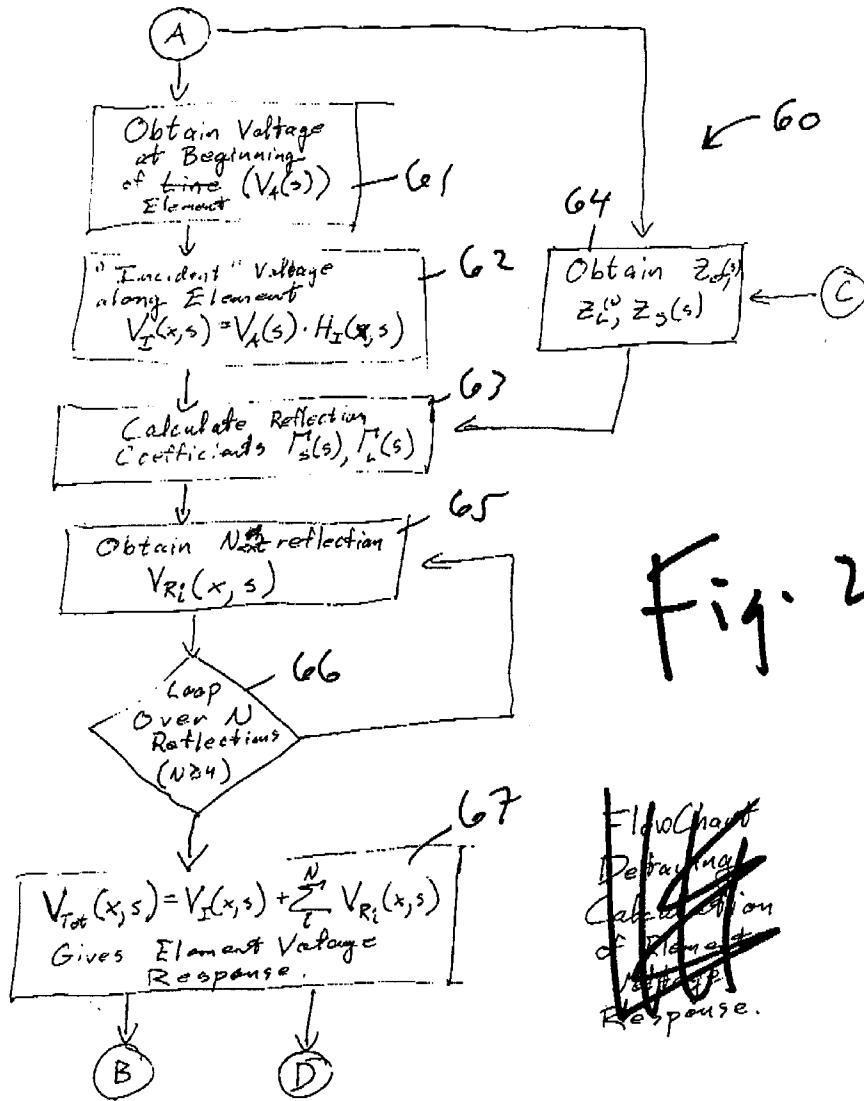 A
Obtain Voltage
at Beginning
of Line (V_A(s))
Element
61
60
"Incident" Voltage
along Element
V_I(x,s) = V_A(s) · H_I(x,s)
62
64
Obtain
Z_L(s), Z_S(s)
C
63
Calculate Reflection
Coefficients Γ_S(s), Γ_L(s)
65
Obtain Next reflection
V_Ri(x,s)
66
Loop
Over N
Reflections
(N≥4)
Fig. 2
67
V_Tot(x,s) = V_I(x,s) + Σ_i^N V_Ri(x,s)
Gives Element Voltage
Response.
B
D
Flow Chart
Detailing
Calculation
of Element
Voltage
Response.